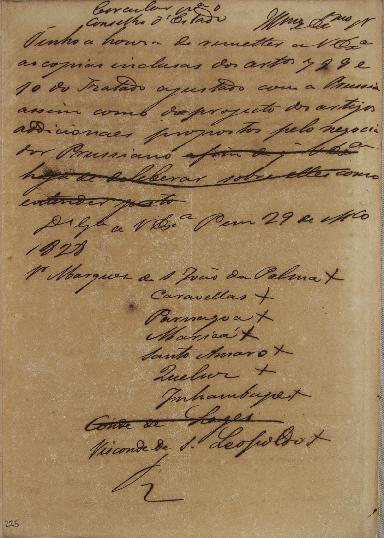 Circular ao
Conselho d'Estado
Tenho a honra de remetter a V Exa
as copias inclusas dos artos 7, 9 e
10 do Tratado ajustado com a Prussia
assim como do projecto dos artigos
addicionaes propostos pelo negocia
dor Prussiano afim de q V Exa
haja de deliberar sobre elles como
entender justo
D Gde a V Exa Paço em 29 de Mço
1828
Sr Marquez de S João da Palma +
Caravellas +
Parnagoa +
Maricá +
Santo Amaro +
Queluz +
Inhambupe +
Conde de Lages
Visconde de S. Leopoldo +
225